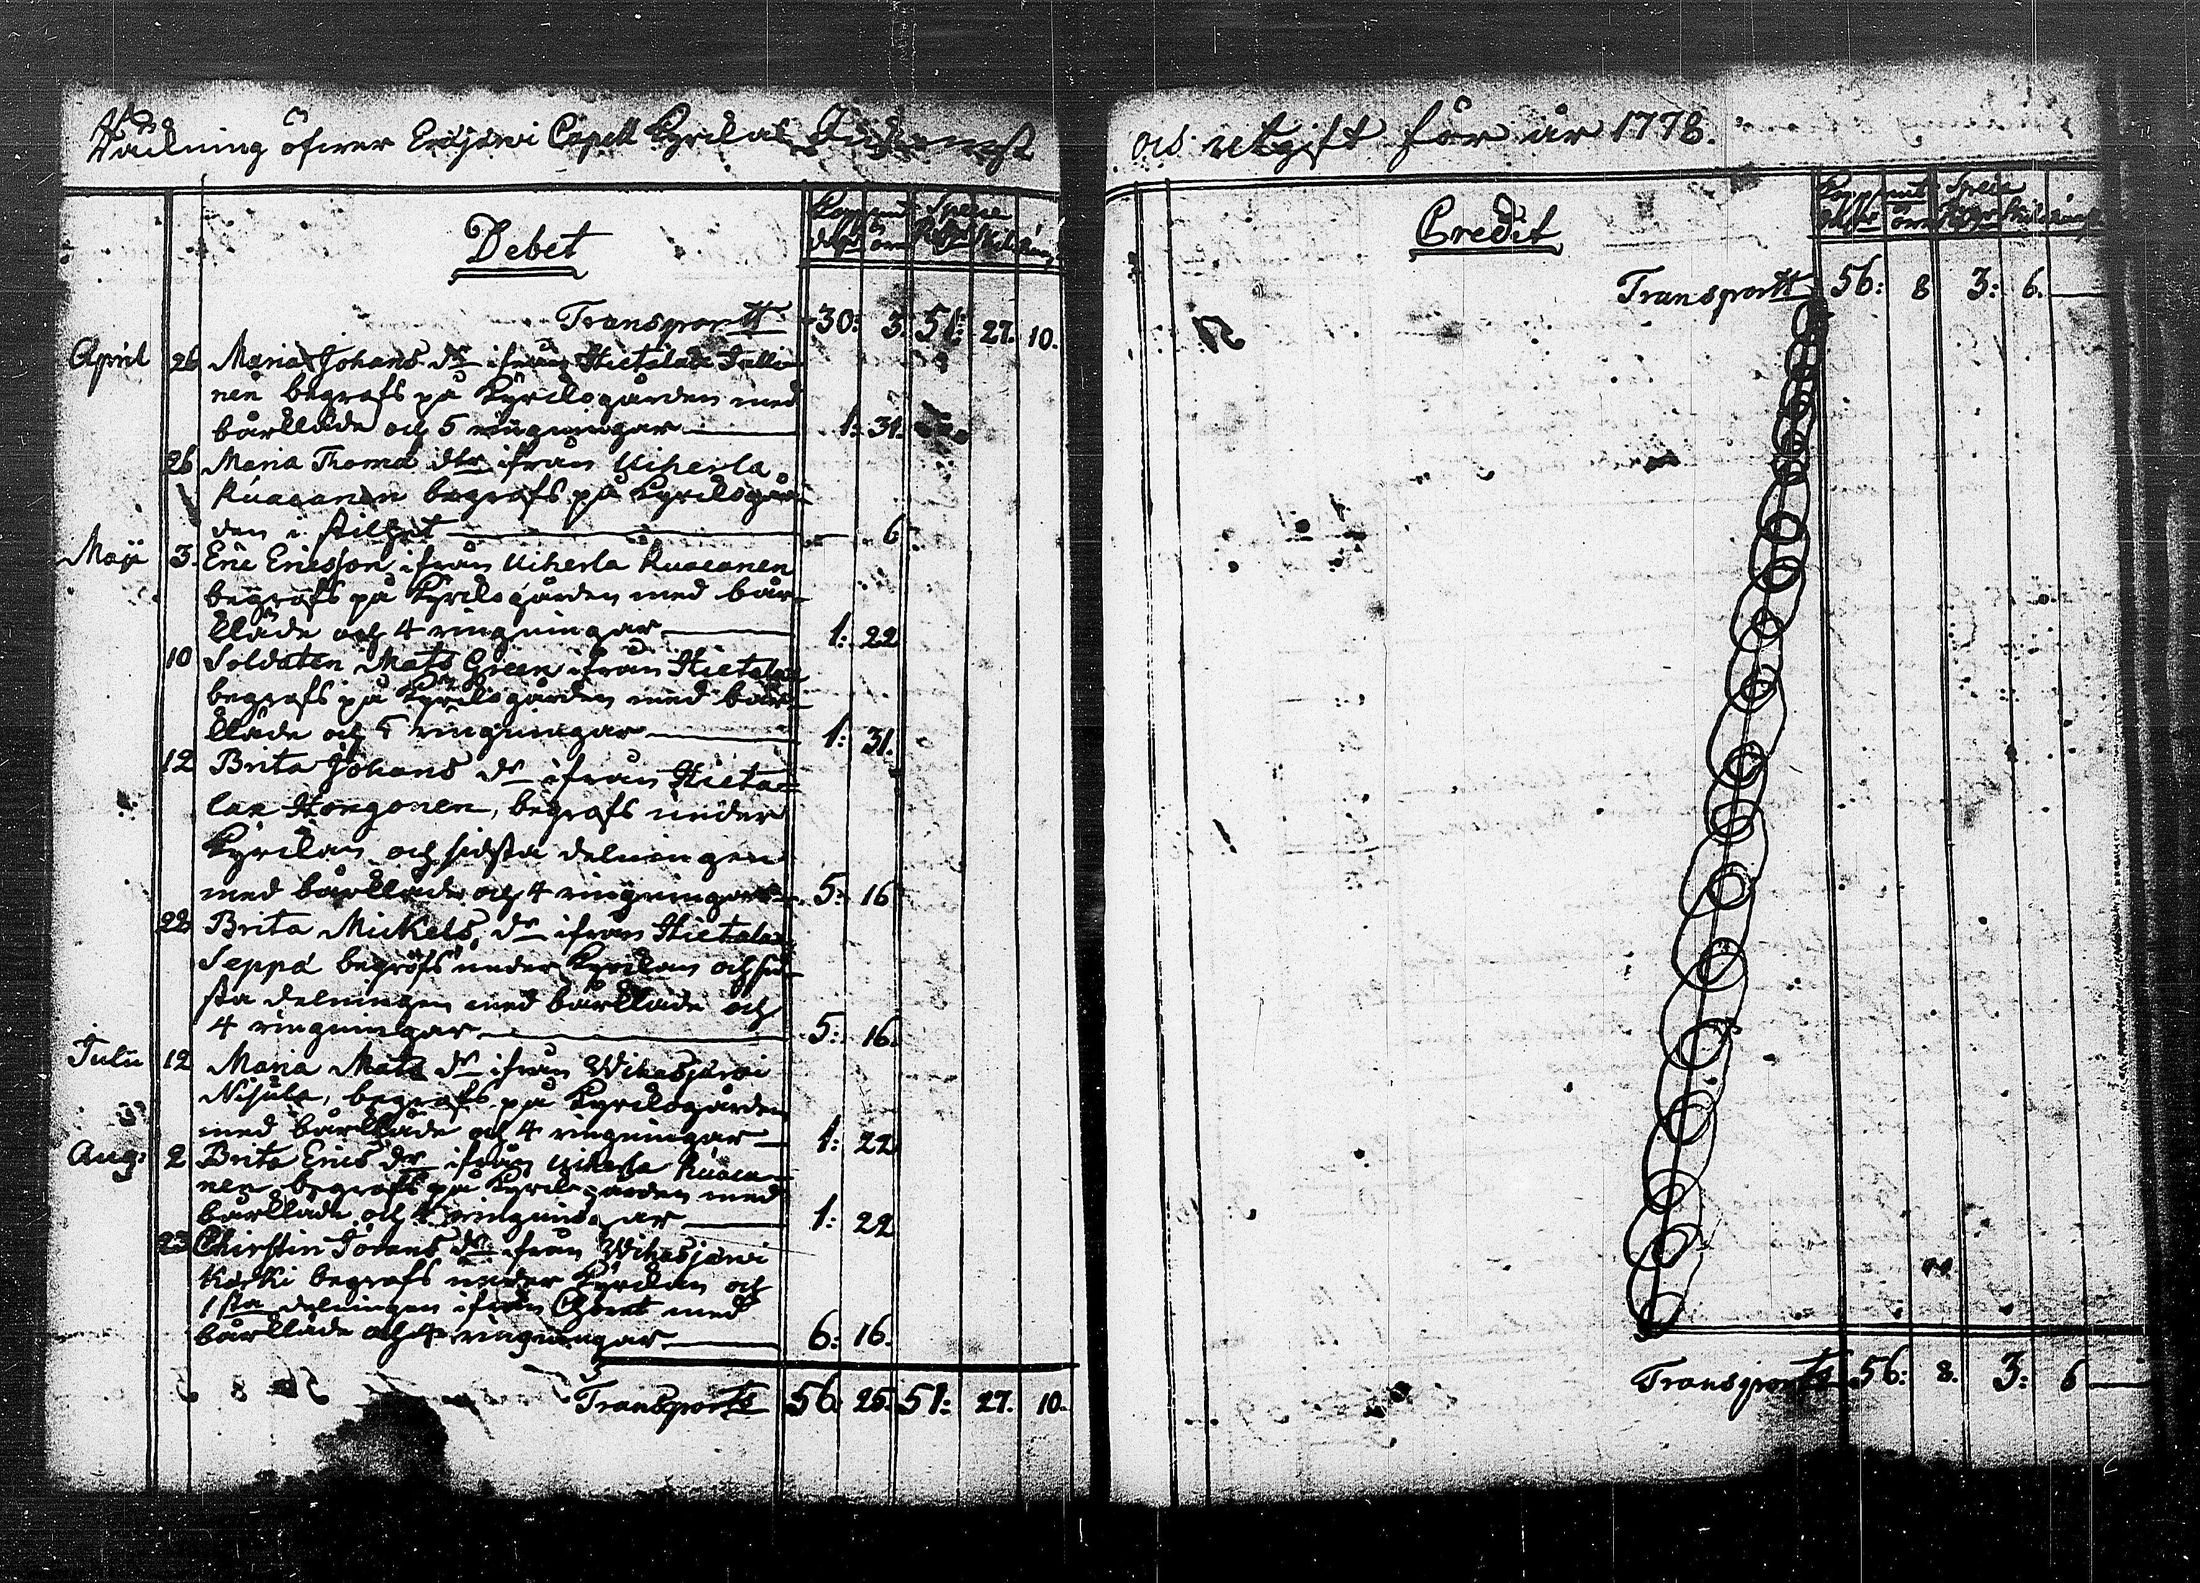 Räckning öfwer Eräjärvi Capell Kyrckas
och utgift för år 1778.
Debet
Transportt 30: 3. 51: 27. 10.
April 26 Maria Johans dr ifrån Hietalax
nen begrofs på Kyrckogården med
bårkläde och 5 ringningar 1: 31.
26 Maria Thomae dtr ifrån Uiherla
begrofs på Kyrckogår-
den i stilhet 6
Maji 3. Eric Ericsson ifrån Uiherla
begrofs på Kyrckogården med bår-
kläde och 4 ringningar 1: 22
10 Soldaten Mats Green ifrån Hietalax
begrofs på Kyrckogården med bår-
kläde och 5 ringningar 1: 31.
12 Brita Johans dr ifrån Hieta-
lax Hongonen, begrofs under
Kyrckan och sidsta delningen
med bårkläde och 4 ringningar 5: 16
22 Brita Mickels dr ifrån Hietalax
Seppä begrofs under Kyrckan och sid-
sta delningen med bårkläde och
4 ringningar 5: 16.
Julii 12 Maria Mats dr ifrån Wihasjärvi
Nisula, begrofs på Kyrckogården
med bårkläde och 4 ringningar 1: 22
Aug: 2 Brita Erics dr ifrån Uiherla
nen begrofs på Kyrckogården med
bårkläde och 4 ringningar 1: 22
23 Chirstin Jörans dr ifrån Wihasjärvi
Koski begrofs under Kyrckan och
1sta delningen ifrån Choret med
bårkläde och 4 ringningar 6: 16.
Transporte 56: 25. 51: 27. 10.
Credit
Transportt 56: 8 3: 6.
Transporte 56: 8. 3: 6